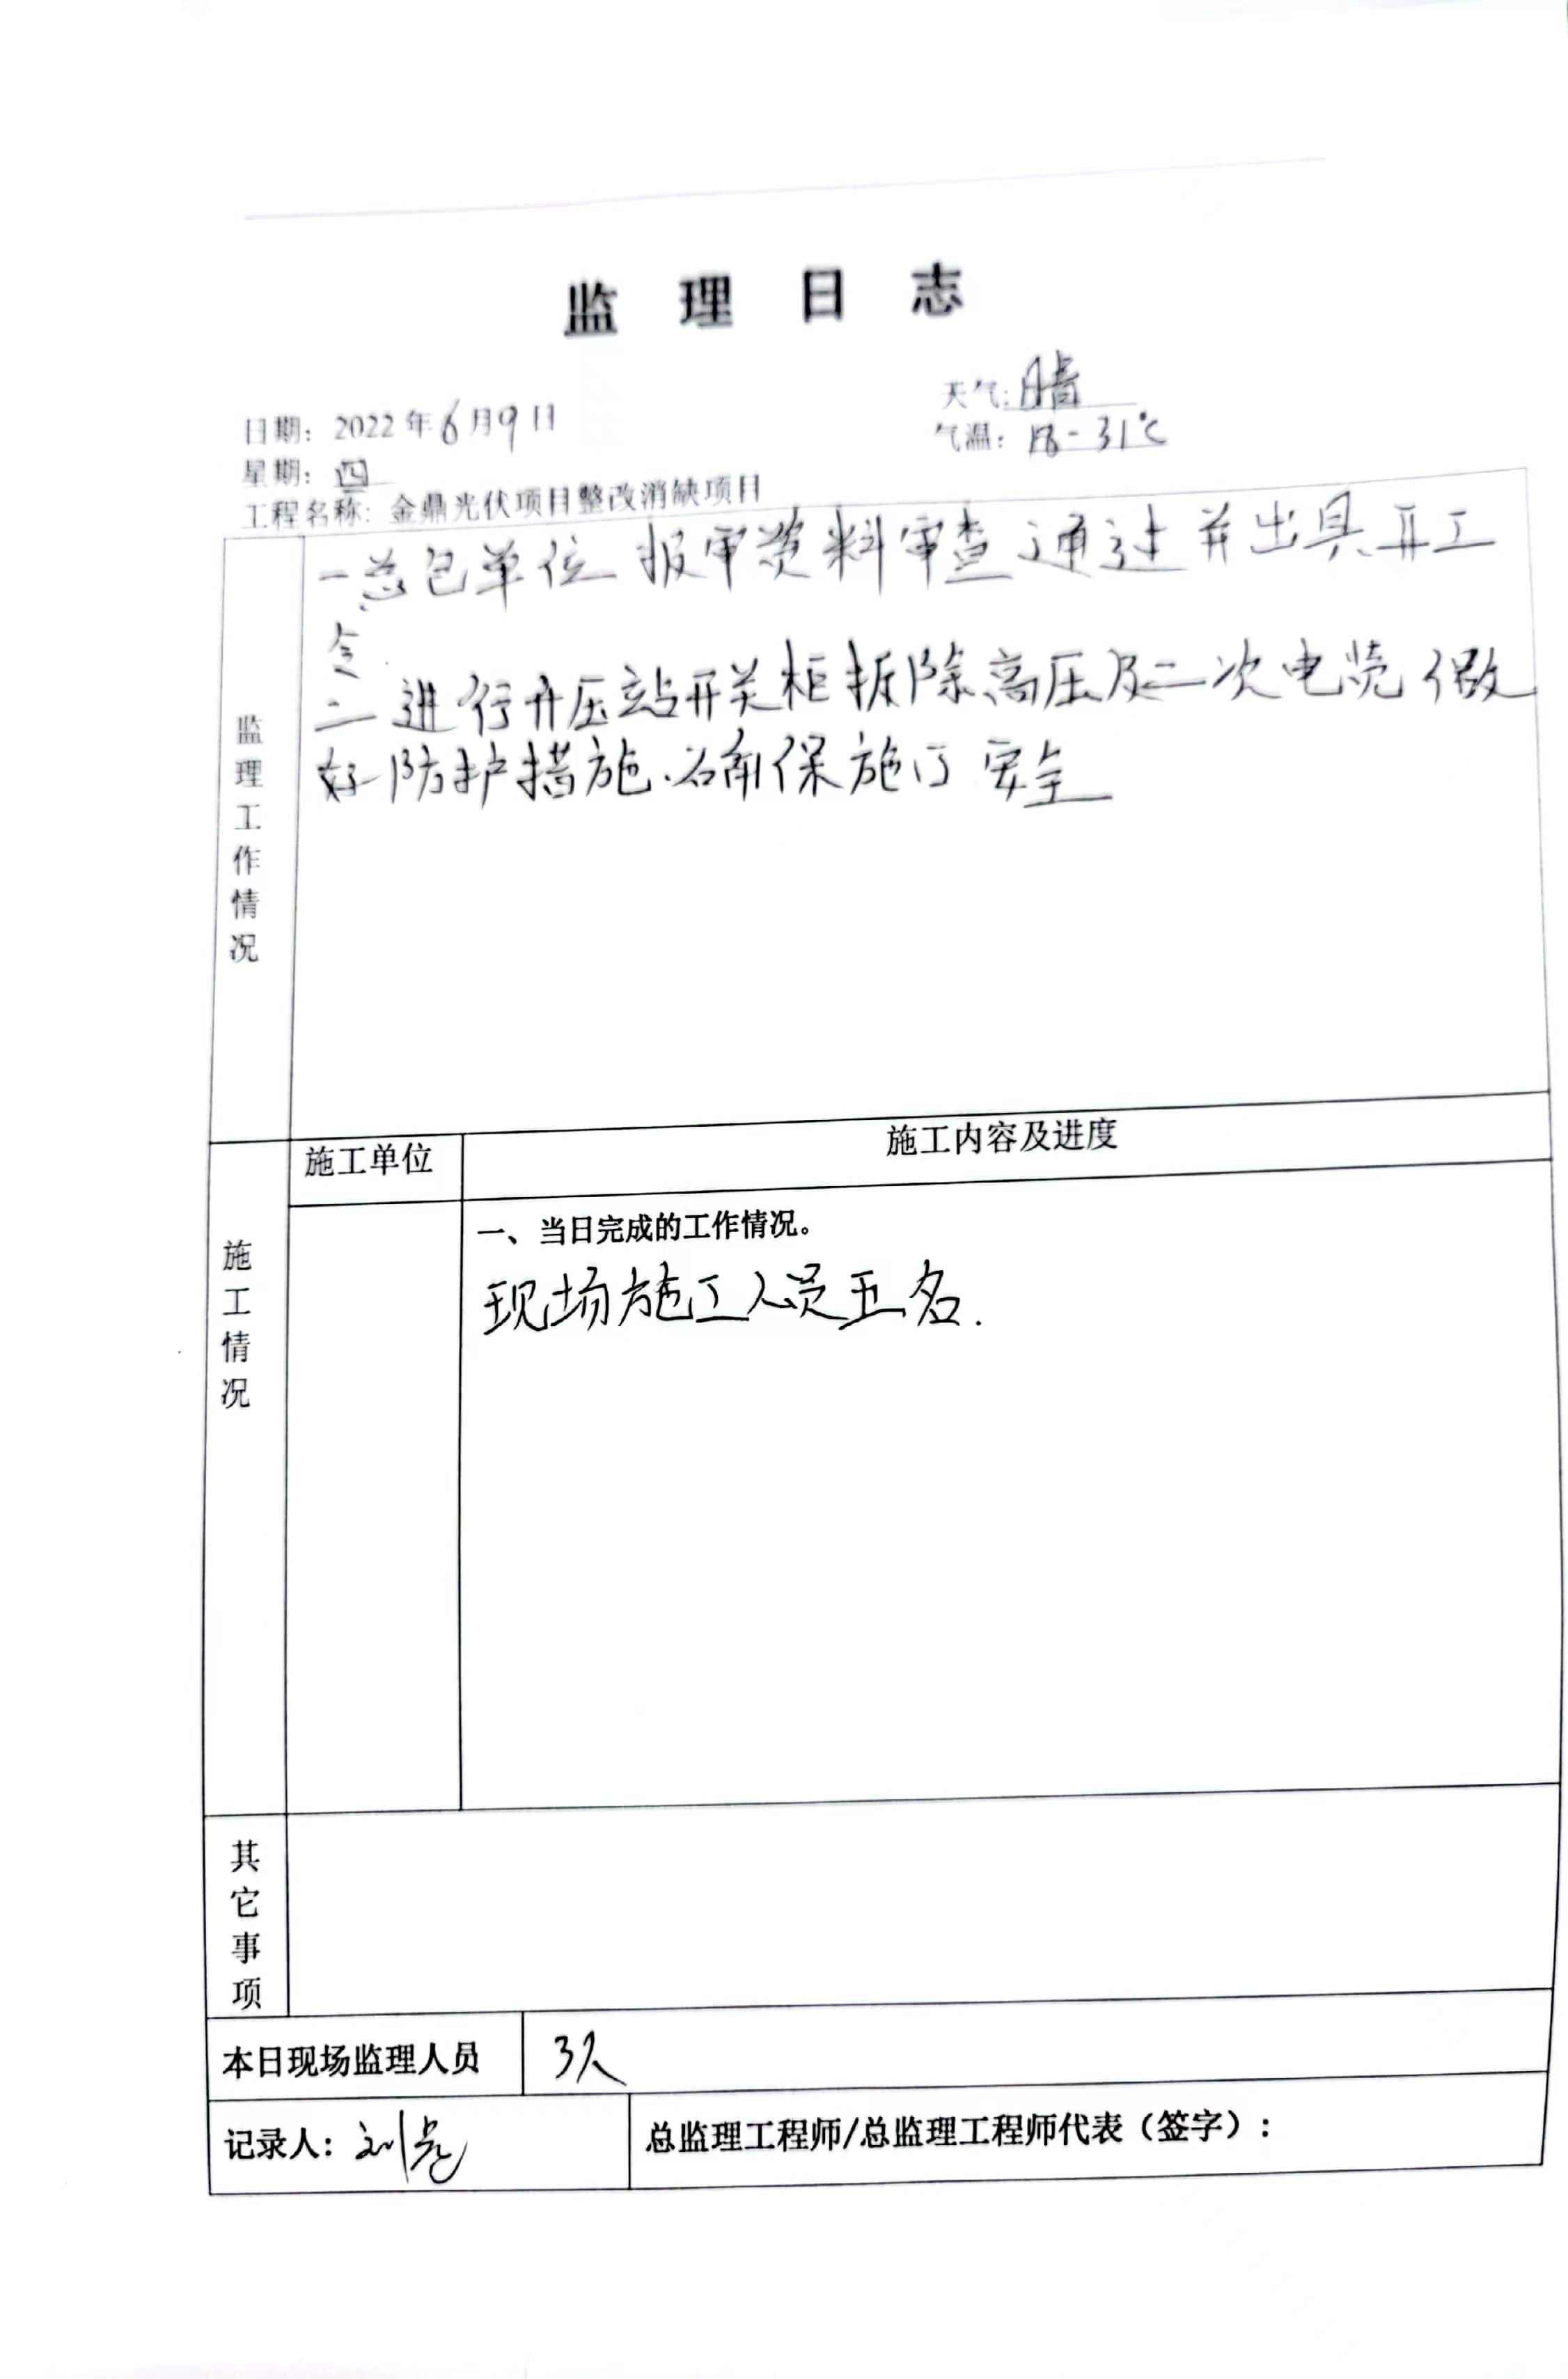 监理日志
日期：2022年6月9日
天气：晴
星期：四
气温：18-31℃
工程名称：金鼎光伏项目整改消缺项目
监理工作情况
一总包单位报审资料审查通过并出具开工
令
二进行升压站开关柜拆除高压及二次电缆做
好防护措施.确保施工安全
施工情况
施工单位
施工内容及进度
一、当日完成的工作情况。
现场施工人员五名.
其它事项
本日现场监理人员
3人
记录人：刘亮
总监理工程师/总监理工程师代表（签字）：